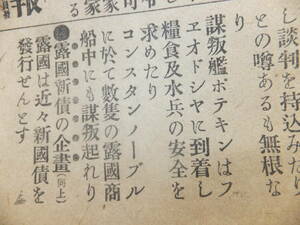 し談判を持込みたり
との噂あるも無根な
謀叛艦ポテキンはフ
エオドシヤに到着し
糧食及水兵の安全を
求めたり
コンスタンノープル
に於て數隻の露國商
船中にも謀叛起れり
露國新債の企畫(同上)
露國は近々新國債を
發行せんとす